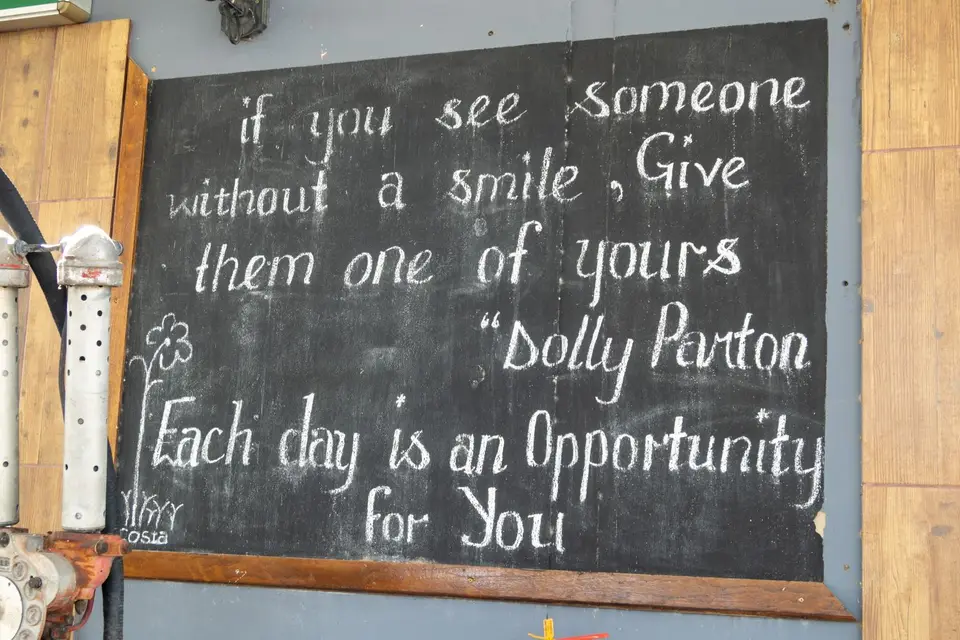 if you see someone
without a smile, Give
them one of yours
"Dolly Parton
Each day is an Opportunity
for You